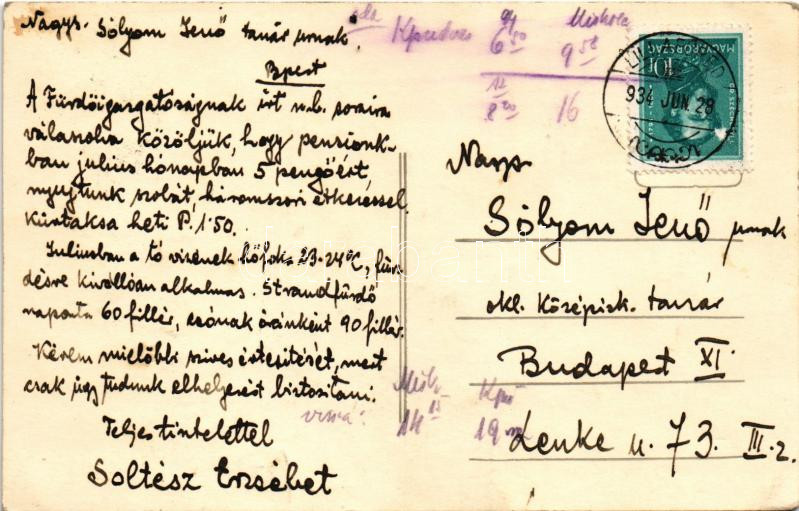 Nagys. Sólyom Jenő tanár urnak.
Bpest
A Fürdőigazgatóságnak írt n.b. soraira
válaszolva közöljük, hogy pensiónk-
ban julius hónapban 5 pengőért,
nyujtunk szobát, háromszori étkezéssel.
Kúrtaksa heti P. 1·50.
Juliusban a tó vizének hőfoka 23-24°C, für-
désre kiválóan alkalmas. Strandfürdő
naponta 60 fillér, csónak óránként 90 fillér.
Kérem mielőbbi szives értesitését, mert
csak úgy tudunk elhelyezést biztositani.
Teljes tisztelettel
Soltész Erzsébet
oda
Miskolc
6 50
9 58
12
8 20
16
vissza:
14 15
19
MAGYARORSZÁG
10
934 JUN 28
Nagys.
Sólyom Jenő urnak
okl. középisk. tanár
Budapest XI.
Lenke u. 73. III. 2.